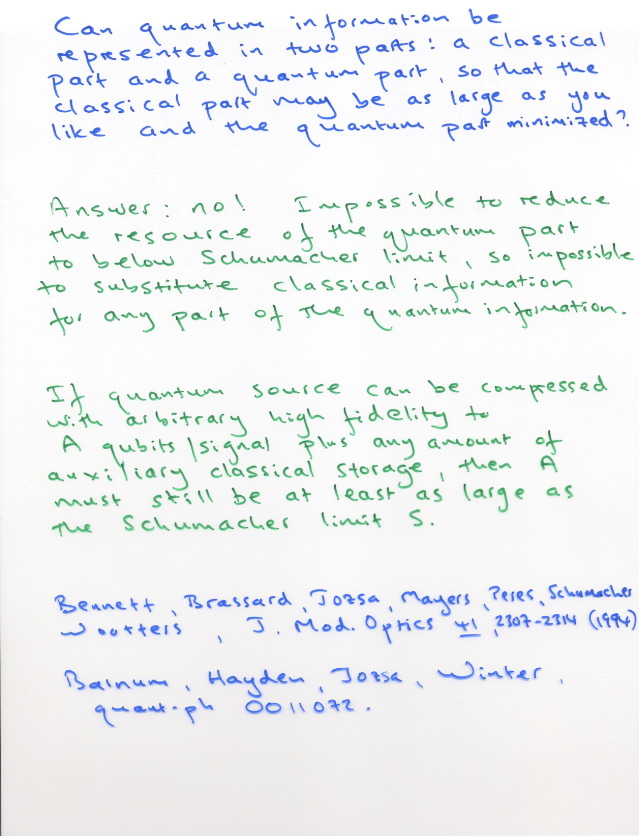 Can quantum information be
represented in two parts: a classical
part and a quantum part, so that the
classical part may be as large as you
like and the quantum part minimized?
Answer: no! Impossible to reduce
the resource of the quantum part
to below Schumacher limit, so impossible
to substitute classical information
for any part of the quantum information.
If quantum source can be compressed
with arbitrary high fidelity to
A qubits/signal plus any amount of
auxiliary classical storage, then A
must still be at least as large as
the Schumacher limit S.
Bennett, Brassard, Jozsa, Mayers, Peres, Schumacher
Wootters, J. Mod. Optics 41, 2307-2314 (1994)
Barnum, Hayden, Jozsa, Winter,
quant-ph 0011072.